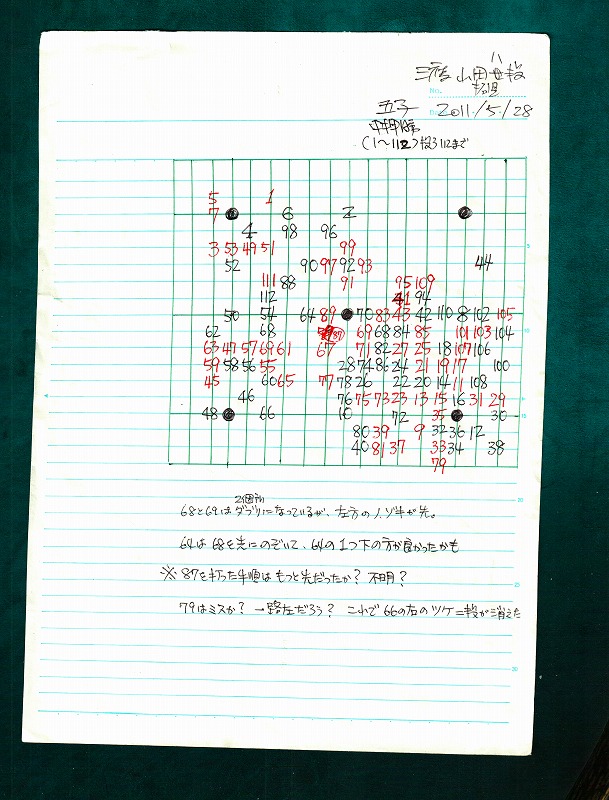 山田
No.
五子
2011/5/28
(1〜112)
5 1
7 6 2
4 98 96
3 53 49 51 99
52 90 97 92 93 44
111 88 91 95 109
112 41 94
50 54 64 89 70 83 43 42 110 8 102 105
62 68 69 68 84 85 101 103 104
63 47 57 69 61 67 71 82 27 25 18 107 106
59 58 56 55 28 74 86 24 21 19 17 100
45 60 65 77 78 26 22 20 14 11 108
46 76 75 73 23 13 15 16 31 29
48 66 10 72 35 30
80 39 9 32 36 12
40 81 37 33 34 38
79
2個所
68と69はダブリになっているが、左方のノゾキが先。
64は68を先にのぞいて、64の1つ下の方が良かったかも
※ 87を打った手順はもっと先だったか? 不明?
79はミスか? 一路左だろう? これで66の右のツケ二段が消えた